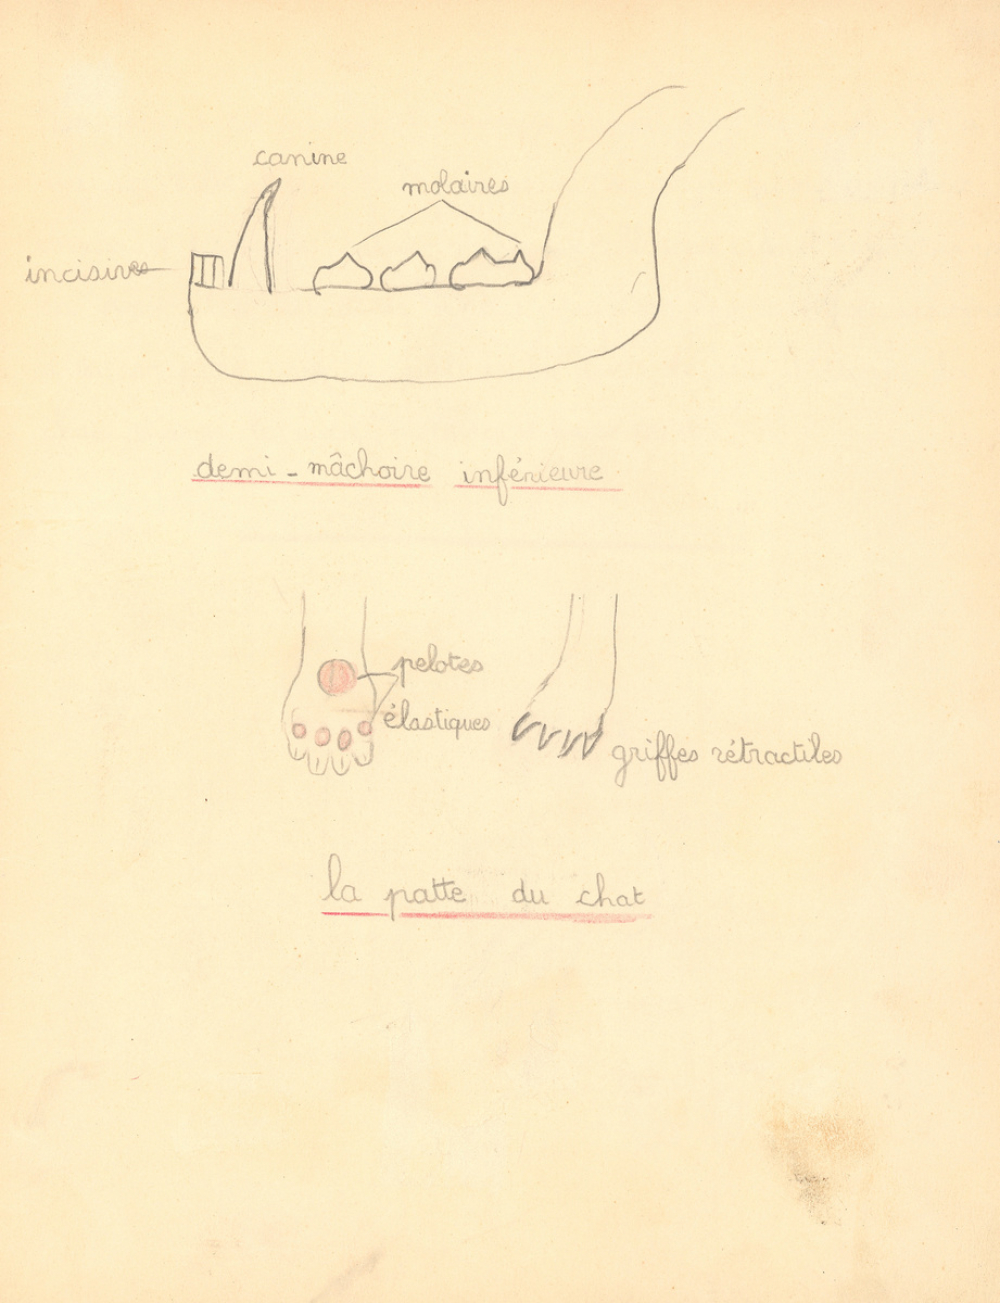 canine
molaires
incisives
demi-mâchoire inférieure
pelotes
élastiques
griffes rétractiles
la patte du chat